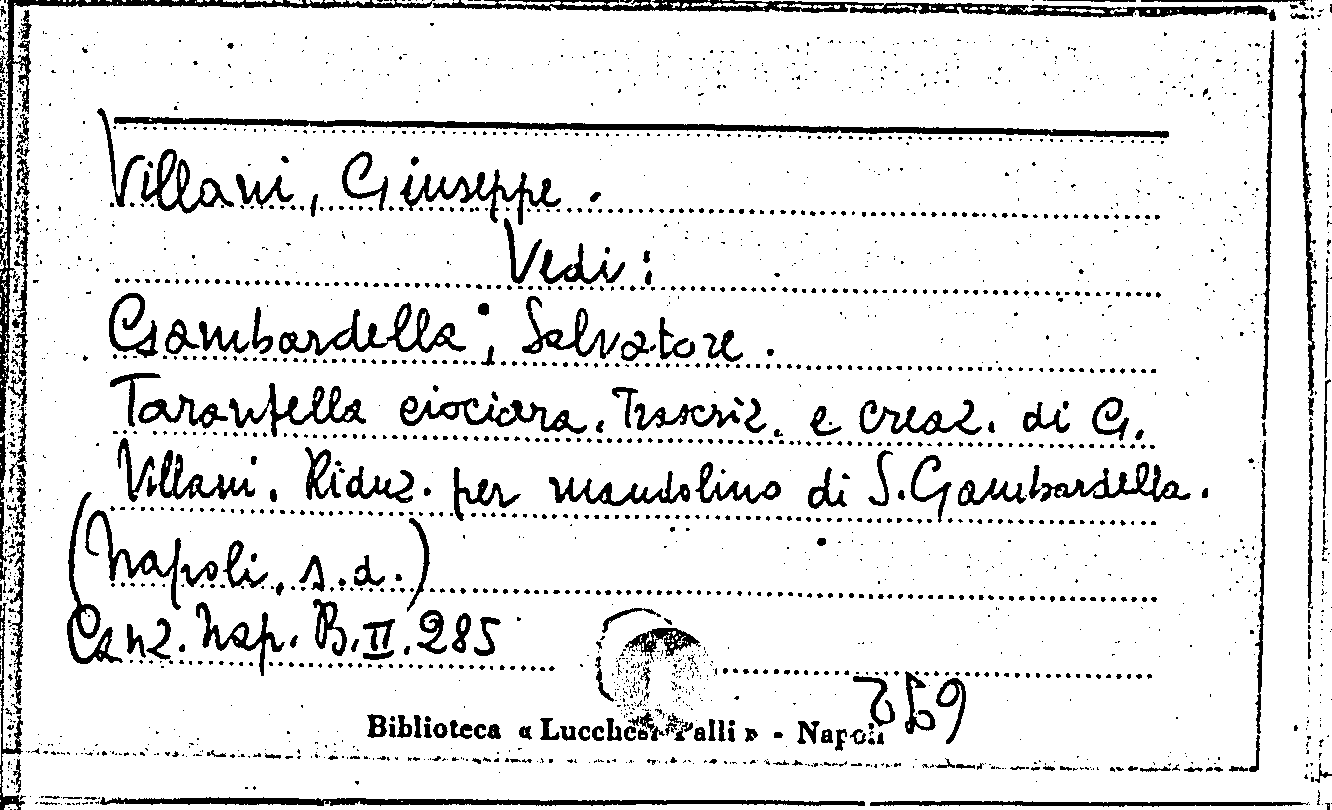 Villani, Giuseppe.
Vedi:
Gambardella, Salvatore.
Tarantella ciociara. Trascriz. e creaz. di G.
Villani. Riduz. per mandolino di S. Gambardella.
(Napoli, s.d.)
Canz. Nap. B.II.285
Biblioteca « Lucchesi Palli » - Napoli